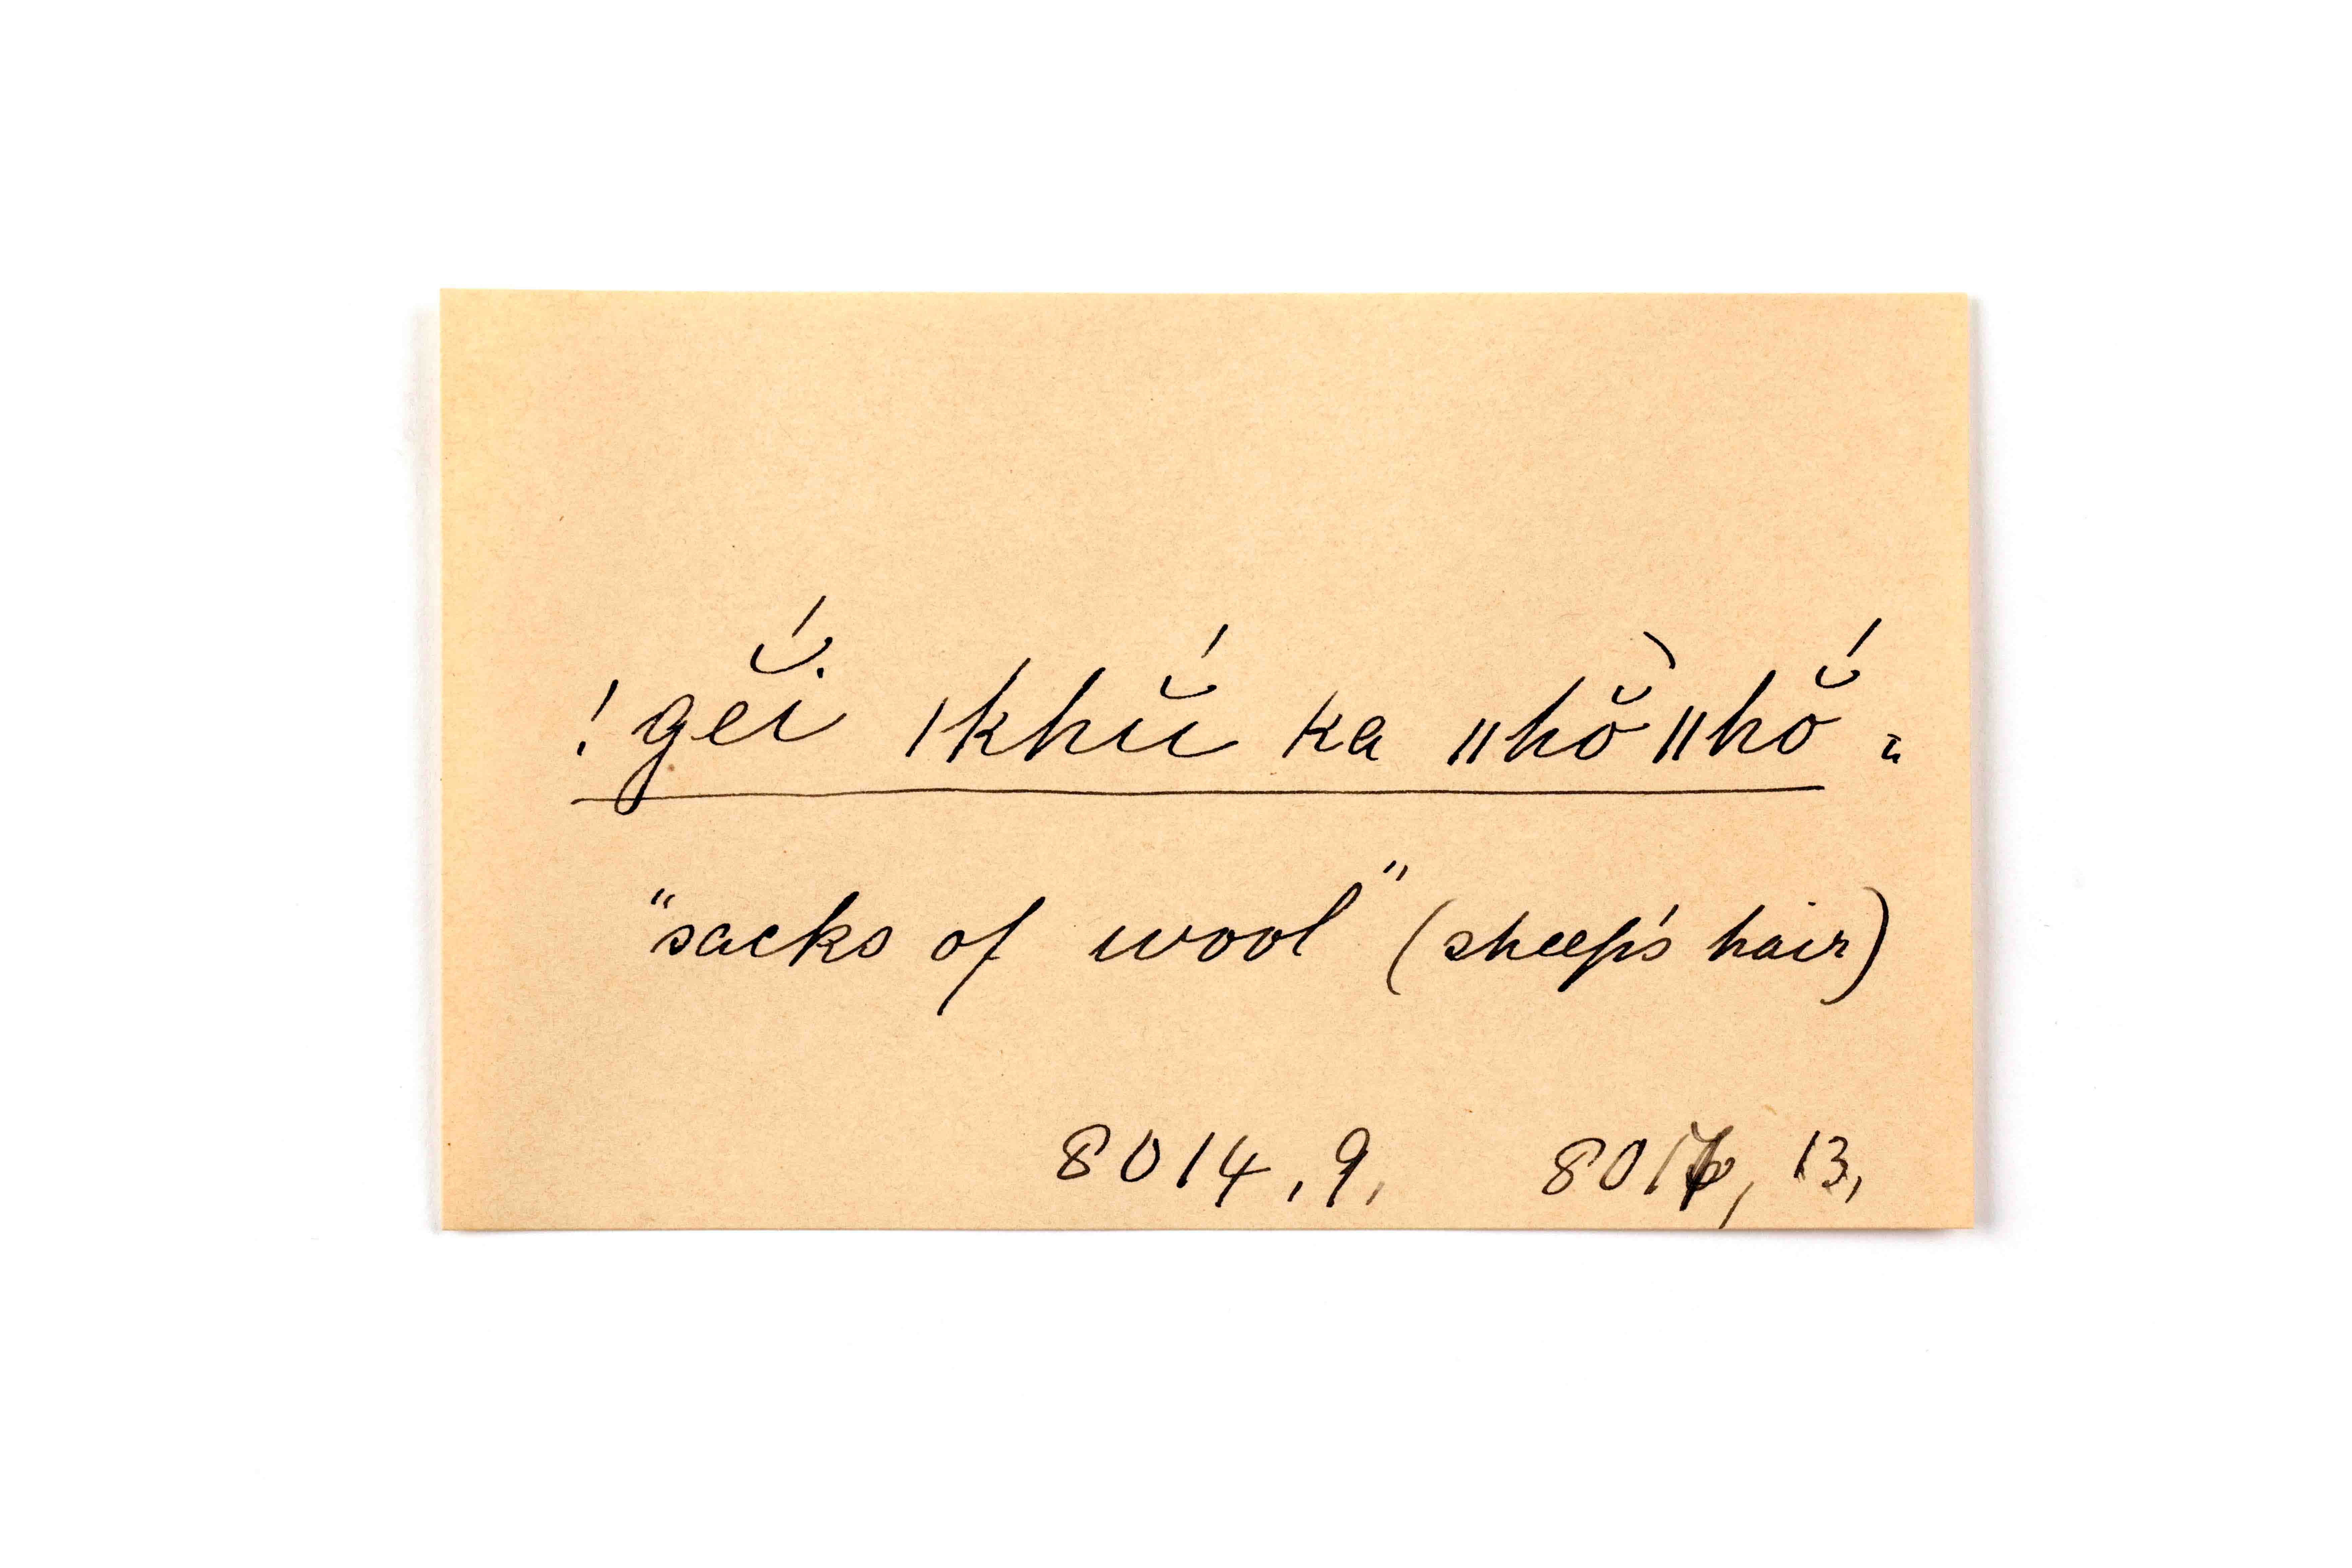 !gĕ́i |khŭ́ ka ||hŏ̀||hŏ́ =
"sacks of wool" (sheep's hair)
8014, 9, 13,